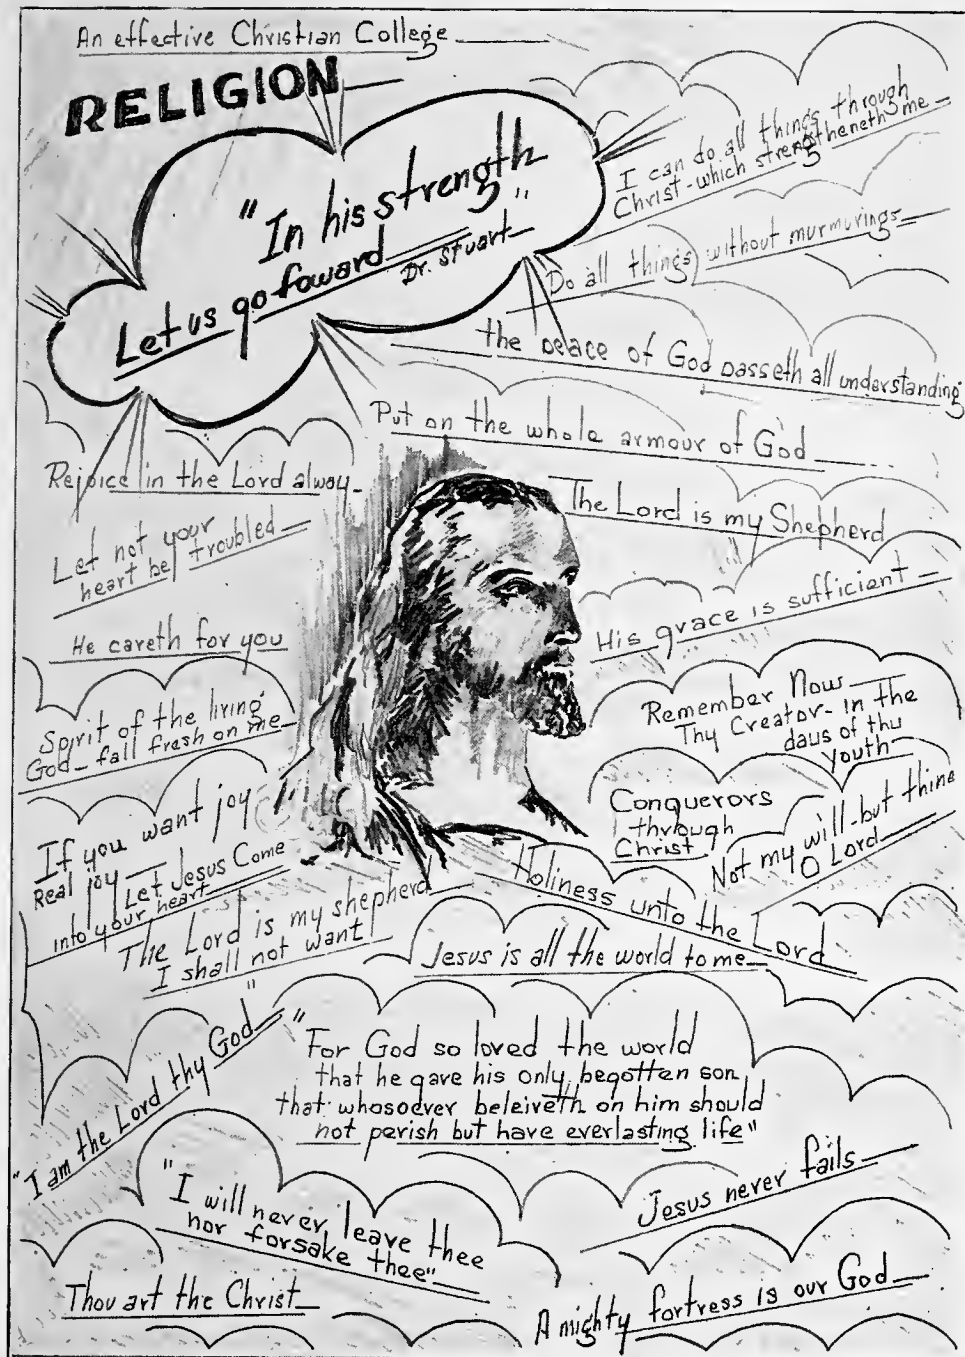 An effective Christian College
RELIGION
"In his strength
Let us go foward"
Dr. Stuart
I can do all things through
Christ-which strengtheneth me
Do all things without murmurings
the peace of God passeth all understanding
Put on the whole armour of God
Rejoice in the Lord alway
The Lord is my Shepherd
Let not your
heart be troubled
His grace is sufficient
He careth for you
Remember Now
Thy Creator-in the
days of thy
youth
Spirit of the living
God-fall fresh on me
Conquerors
through
Christ
Not my will-but thine
O Lord
If you want joy
Real joy
Let Jesus Come
into your heart
The Lord is my shepherd
I shall not want
Holiness unto the Lord
Jesus is all the world to me
"I am the Lord thy God"
"For God so loved the world
that he gave his only begotten son
that whosoever beleiveth on him should
not perish but have everlasting life"
"I will never leave thee
nor forsake thee"
Jesus never fails
Thou art the Christ
A mighty fortress is our God